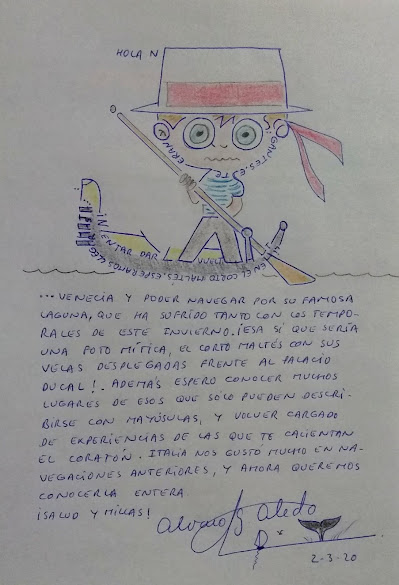 HOLA N
GIGANTES.ESTE
ERAN
INTENTAR DAR
VUELT
EN EL CORTO MALTÉS.ESPERAMOS LLEGAR
... VENECIA Y PODER NAVEGAR POR SU FAMOSA
LAGUNA, QUE HA SUFRIDO TANTO CON LOS TEMPO-
RALES DE ESTE INVIERNO. ¡ESA SÍ QUE SERÍA
UNA FOTO MÍTICA, EL CORTO MALTÉS CON SUS
VELAS DESPLEGADAS FRENTE AL PALACIO
DUCAL!. ADEMÁS ESPERO CONOCER MUCHOS
LUGARES DE ESOS QUE SÓLO PUEDEN DESCRI-
BIRSE CON MAYÚSULAS, Y VOLVER CARGADO
DE EXPERIENCIAS DE LAS QUE TE CALIENTAN
EL CORAZÓN. ITALIA NOS GUSTÓ MUCHO EN NA-
VEGACIONES ANTERIORES, Y AHORA QUEREMOS
CONOCERLA ENTERA
¡SALUD Y MILLAS!
Alvaro G Aledo
2-3-20